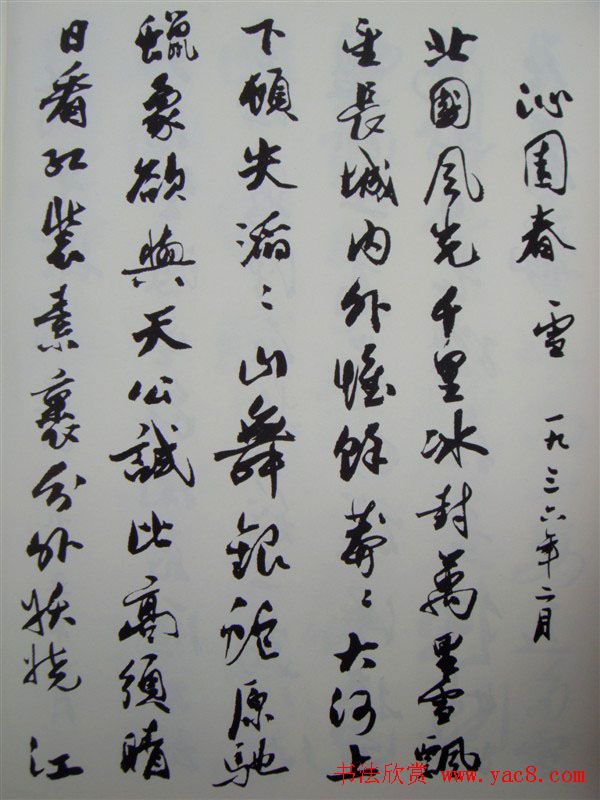 沁園春 雪 一九三六年二月
北國風光千里冰封萬里雪飄
望長城内外惟餘莽〻大河上
下頓失滔〻山舞銀蛇原馳
蠟象欲與天公試比高須晴
日看紅裝素裹分外妖嬈 江
书法欣赏 www.yac8.com